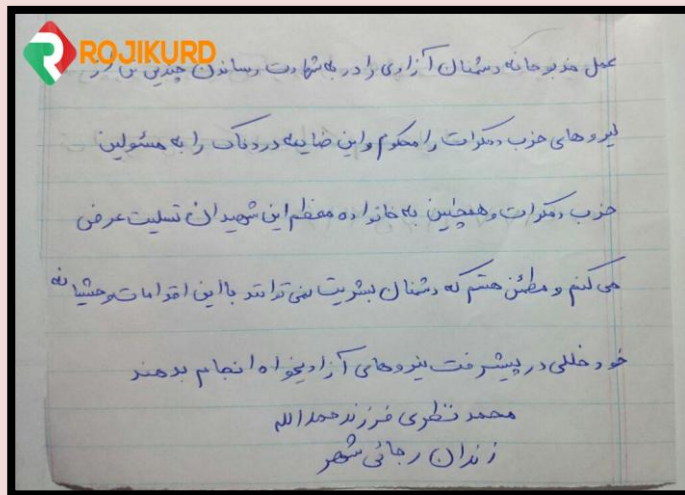 ROJIKURD
عمل مذبوحانه دشمنان آزادی را در به شهادت رساندن چندین تن از
نیروهای حزب دمکرات را محکوم و این ضایعه دردناک را به مسئولین
حزب دمکرات و همچنین به خانواده معظم این شهیدان تسلیت عرض
می کنم و مطمئن هستم که دشمنان بشریت نمی توانند با این اقدامات وحشیانه
خود خللی در پیشرفت نیروهای آزادیخواه انجام بدهند
محمد نظری فرزند حمدالله
زندان رجائی شهر